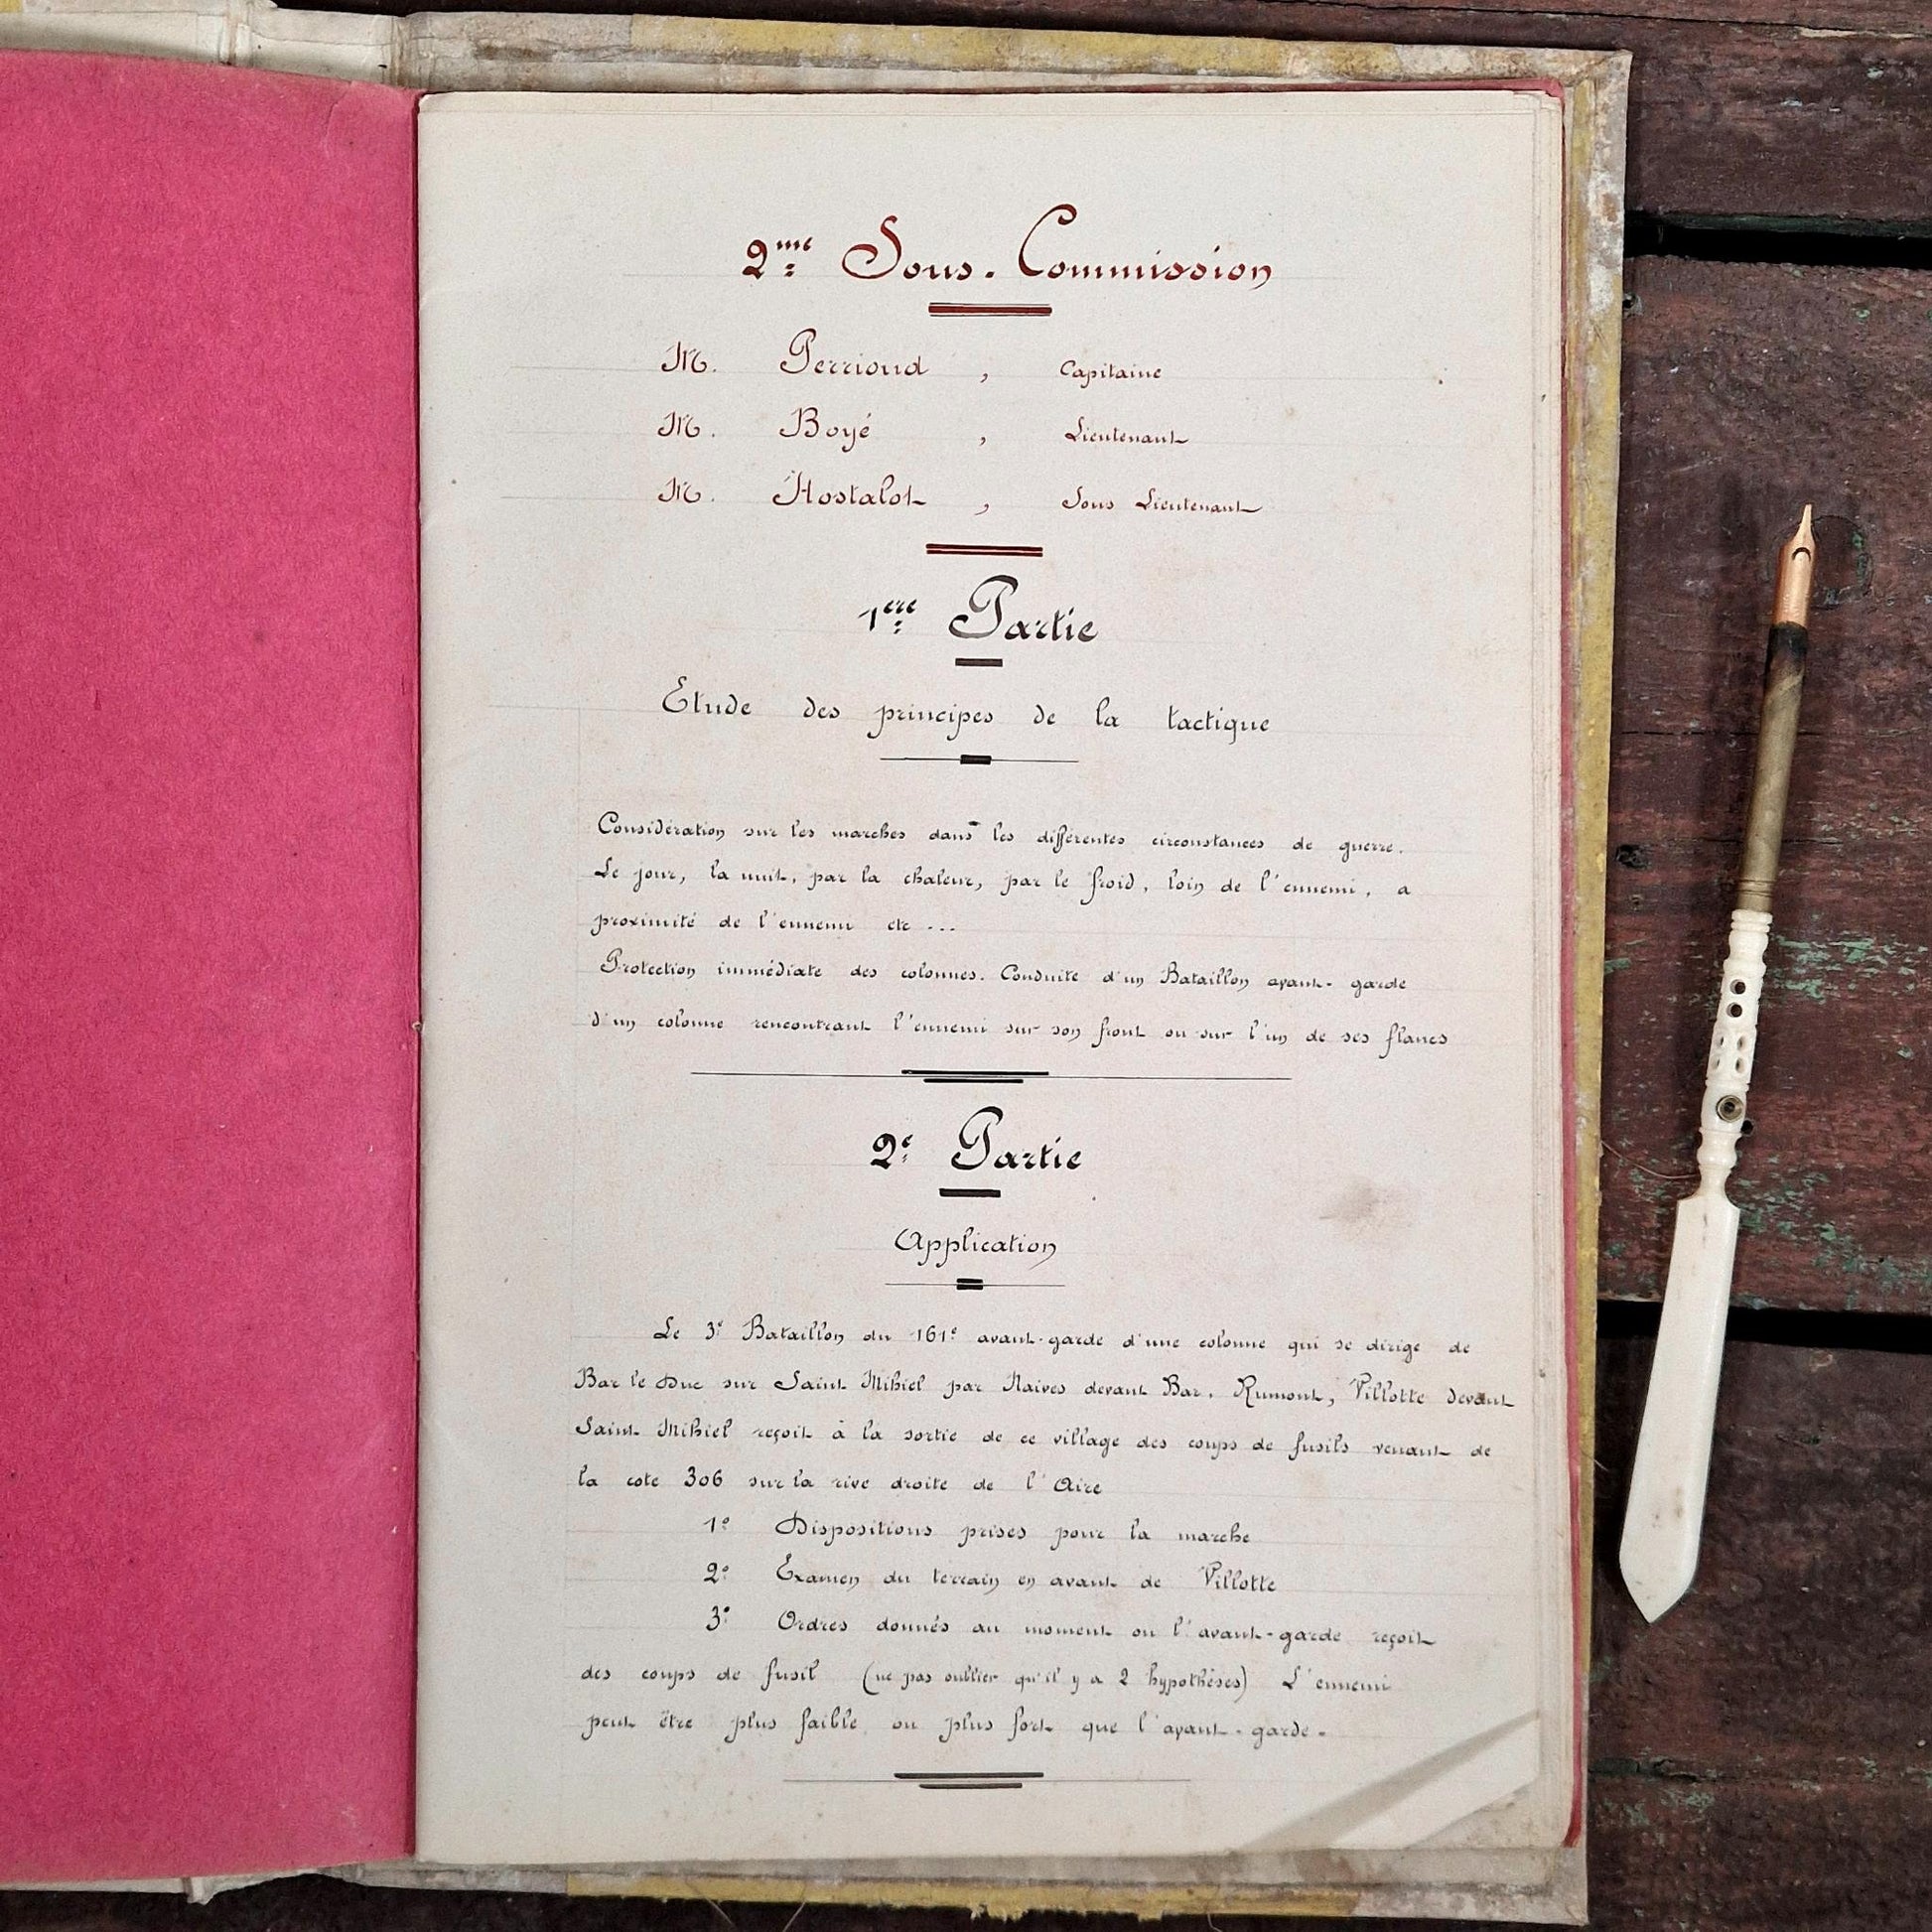 2me Sous-Commission
M. Perrioud, Capitaine
M. Boyé, Lieutenant
M. Hostalot, Sous Lieutenant
1ère Partie
Etude des principes de la tactique
Considération sur les marches dans les différentes circonstances de guerre.
Le jour, la nuit, par la chaleur, par le froid, loin de l'ennemi, a
proximité de l'ennemi etc ...
Protection immédiate des colonnes. Conduite d'un Bataillon avant-garde
d'un colonne rencontrant l'ennemi sur son front ou sur l'un de ses flancs
2e Partie
Application
Le 3e Bataillon du 161e avant-garde d'une colonne qui se dirige de
Bar le Duc sur Saint Mihiel par Naives devant Bar, Rumont, Villotte devant
Saint Mihiel reçoit à la sortie de ce village des coups de fusils venant de
la cote 306 sur la rive droite de l'Aire
1° Dispositions prises pour la marche
2° Examen du terrain en avant de Villotte
3° Ordres donnés au moment ou l'avant-garde reçoit
des coups de fusil (ne pas oublier qu'il y a 2 hypothéses) L'ennemi
peut être plus faible ou plus fort que l'avant-garde.